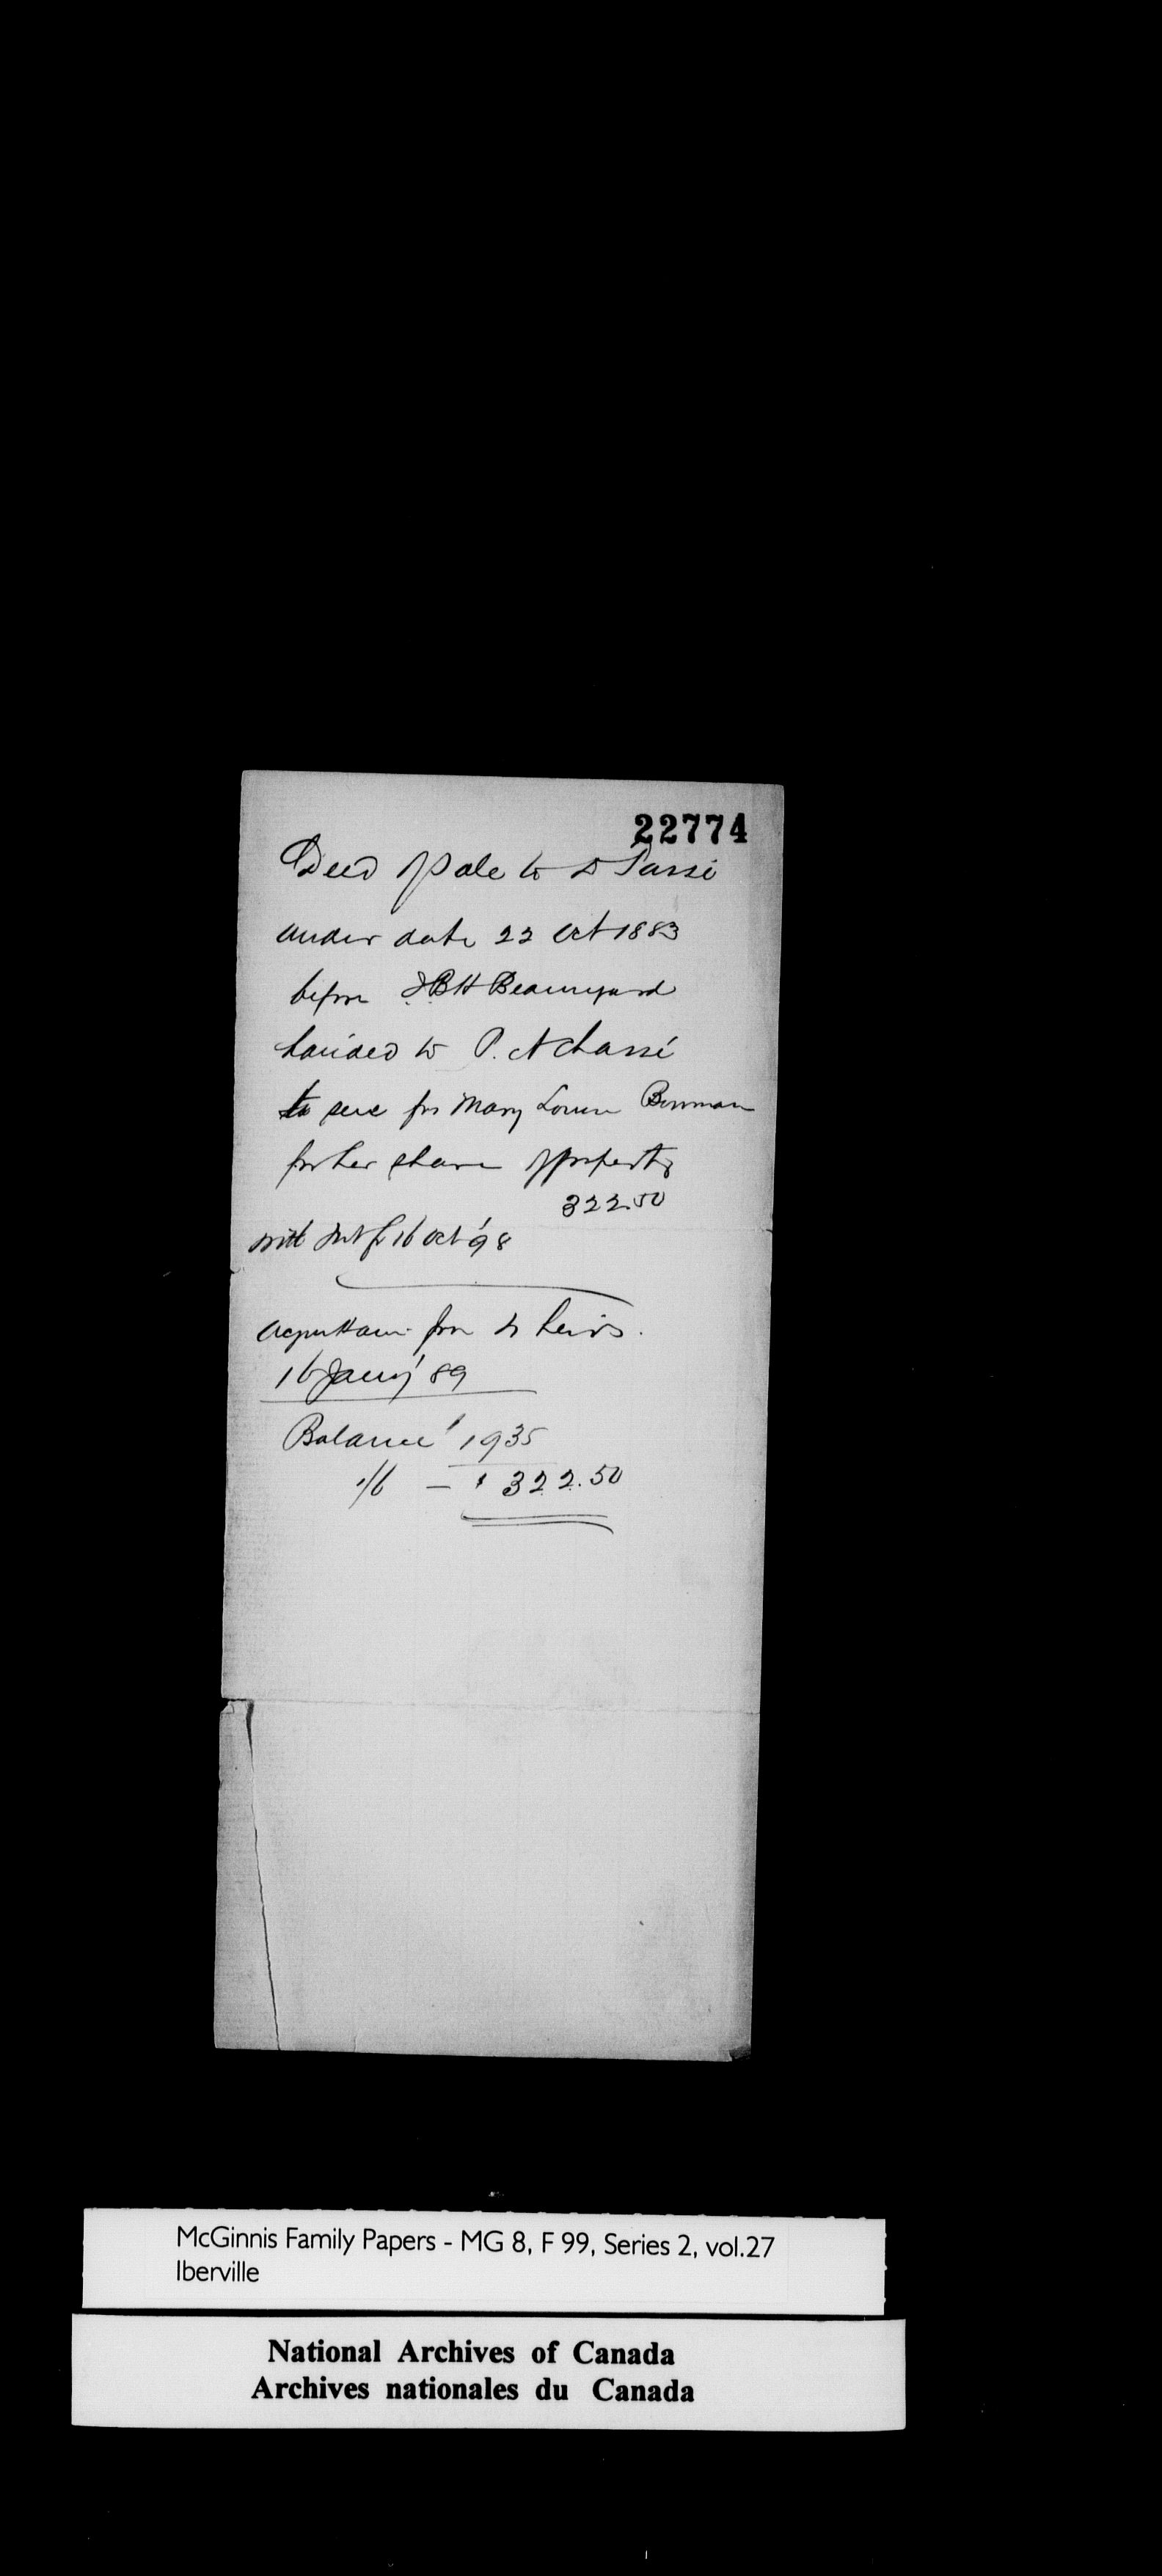 22774
Deed of Sale to D
under date 22 Oct 1883
before J.B.H Beauregard
handed to P. A Chassé
to sue for Mary Louisa Bowman
for her share of property
322.50
with Int fr 16 Oct '98
acquittance from 4 heirs.
16 Jany '89
Balance $ 1935
1/6 — $ 322.50
McGinnis Family Papers - MG 8, F 99, Series 2, vol.27
Iberville
National Archives of Canada
Archives nationales du Canada